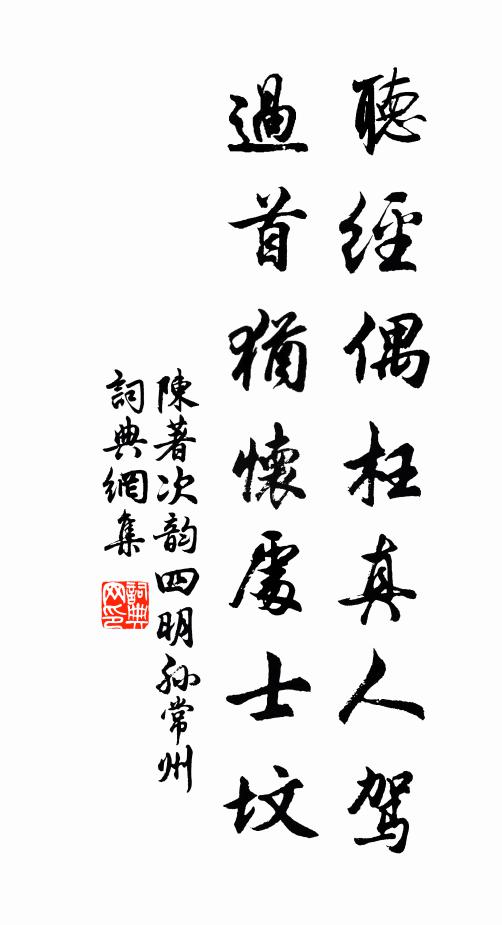 聽經偶枉真人駕
過首猶懷處士墳
陳著次韵四明孫常州
詞典網集
詞典网印